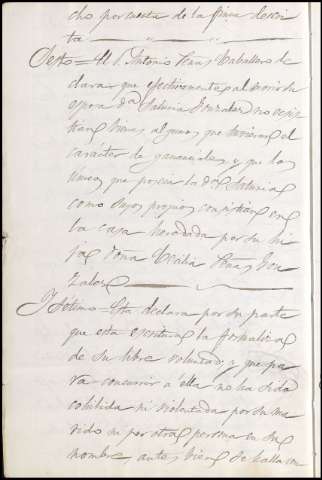 cho por venta de la finca descri
ta
Sesto = El S. Antonio Peña y Caballero de
clara que efectivamente al morir su
esposa D.ª Saturia Gonzalez no ecsis
tian bienes algunos que tuvieran el
carácter de gananciales y que los
unicos que poseia la D.ª Saturia
como suyos propios consistian en
la casa heredada por su hi
ja Doña Cecilia Peña y Gon
zalez
Y Sétimo = Esta declara por su parte
que esta escritura la formaliza
de su libre voluntad y que pa
ra concurrir a ella no ha sido
cohibida ni violentada por su ma
rido ni por otra persona en su
nombre, antes bien se halla con